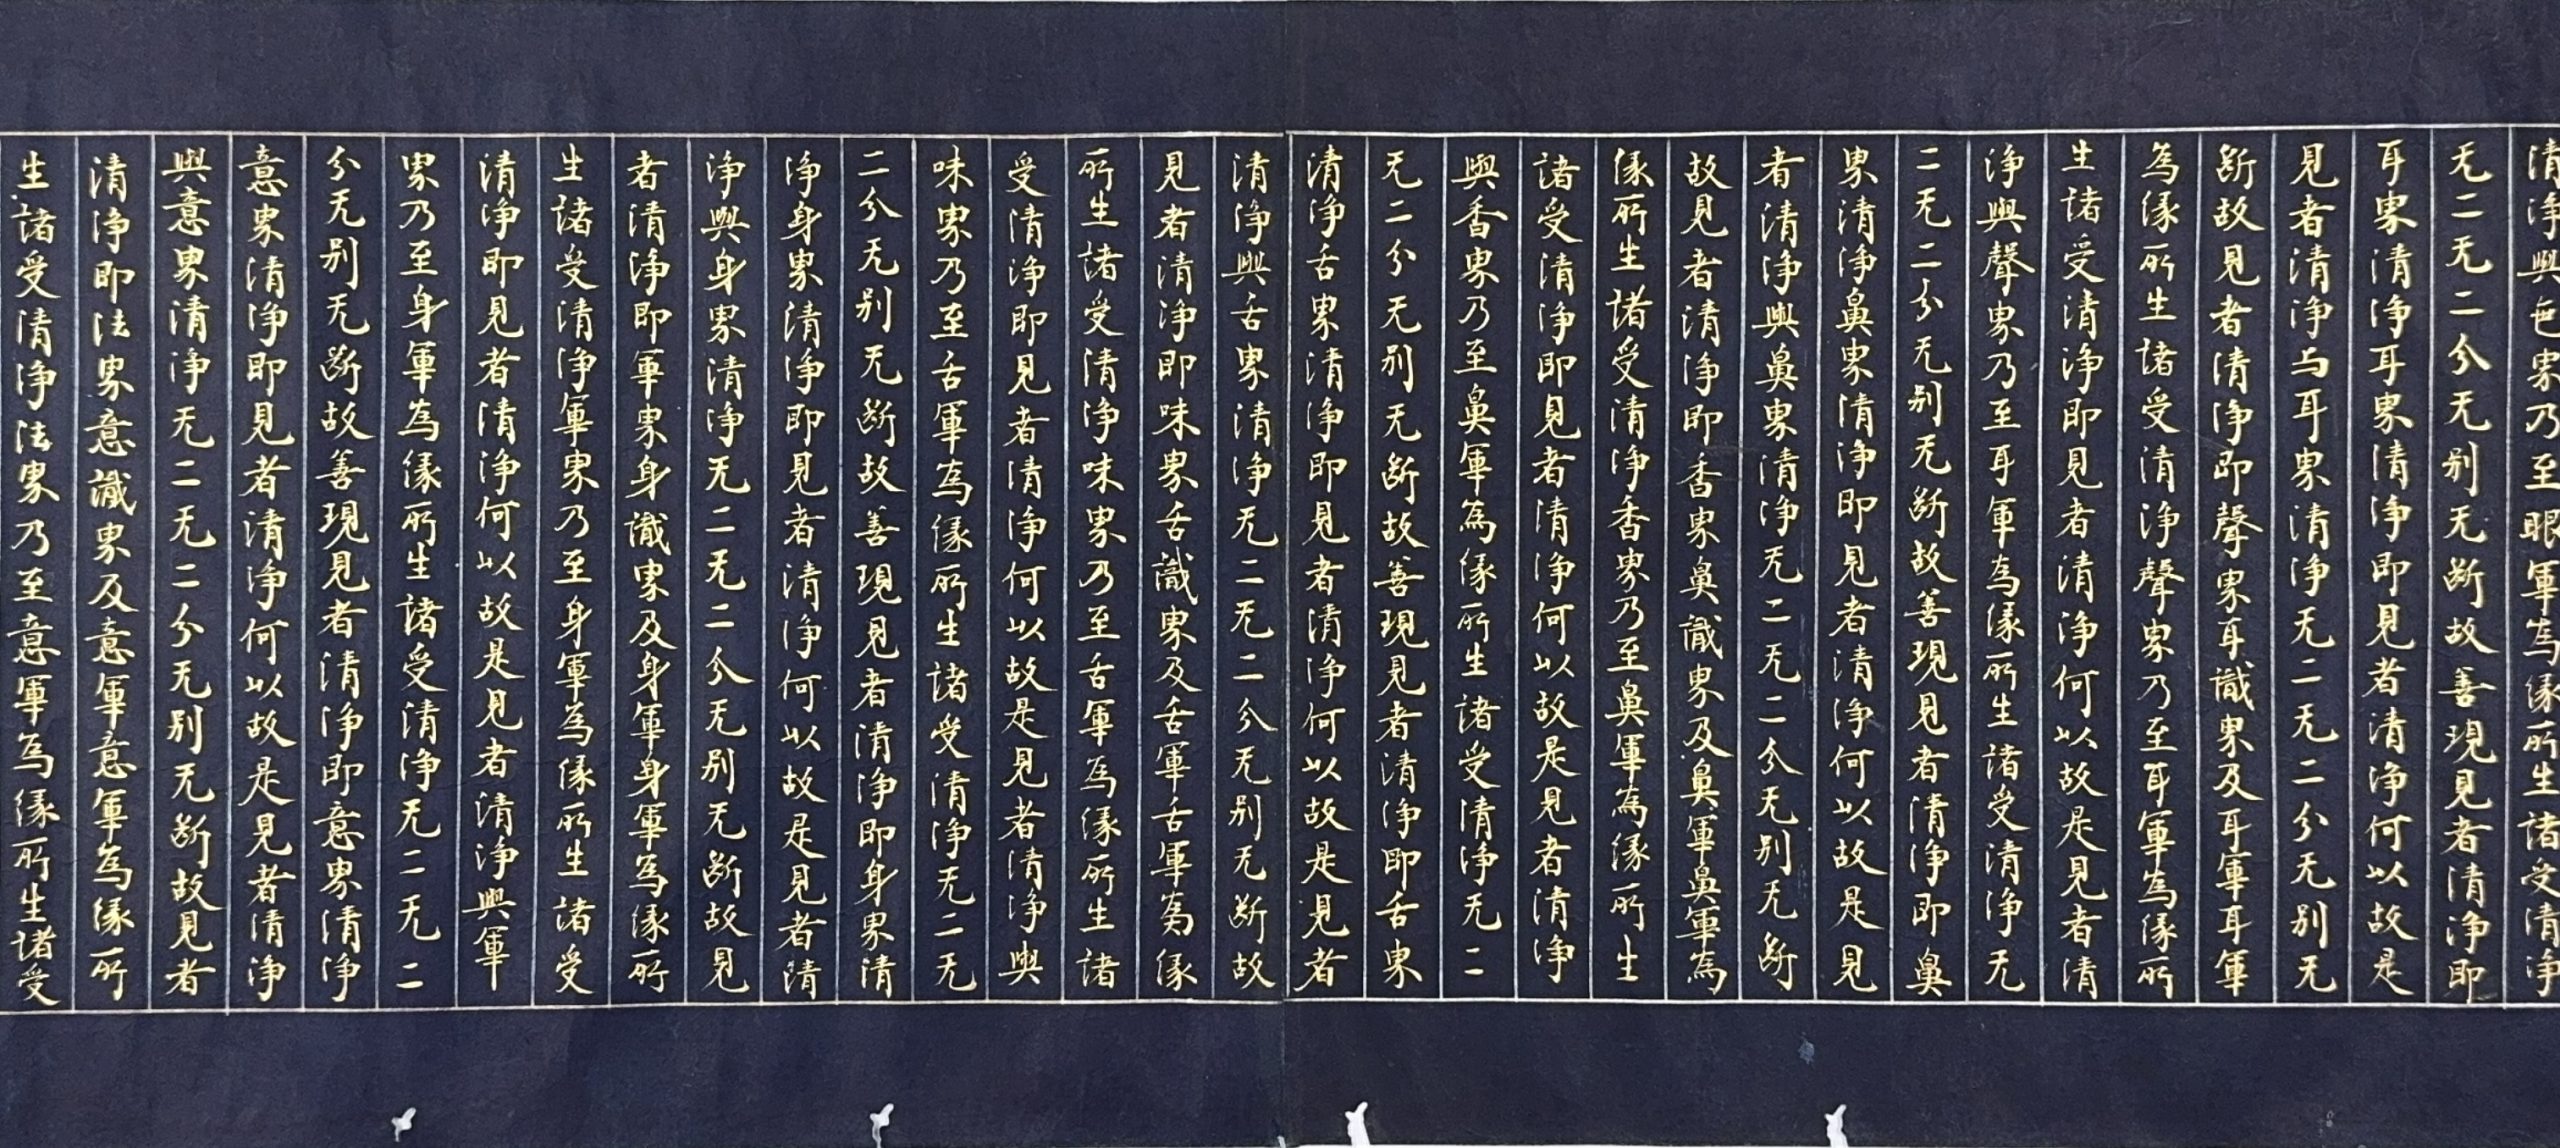 清浄與色界乃至眼觸為縁所生諸受清浄
无二无二分无别无断故善現見者清浄即
耳界清浄耳界清浄即見者清浄何以故是
見者清浄与耳界清浄无二无二分无别无
断故見者清浄即聲界耳識界及耳觸耳觸
為縁所生諸受清浄聲界乃至耳觸為縁所
生諸受清浄即見者清浄何以故是見者清
浄與聲界乃至耳觸為縁所生諸受清浄无
二无二分无别无断故善現見者清浄即鼻
界清浄鼻界清浄即見者清浄何以故是見
者清浄與鼻界清浄无二无二分无别无断
故見者清浄即香界鼻識界及鼻觸鼻觸為
縁所生諸受清浄香界乃至鼻觸為縁所生
諸受清浄即見者清浄何以故是見者清浄
與香界乃至鼻觸為縁所生諸受清浄无二
无二分无别无断故善現見者清浄即舌界
清浄舌界清浄即見者清浄何以故是見者
清浄與舌界清浄无二无二分无别无断故
見者清浄即味界舌識界及舌觸舌觸為縁
所生諸受清浄味界乃至舌觸為縁所生諸
受清浄即見者清浄何以故是見者清浄與
味界乃至舌觸為縁所生諸受清浄无二无
二分无别无断故善現見者清浄即身界清
浄身界清浄即見者清浄何以故是見者清
浄與身界清浄无二无二分无别无断故見
者清浄即觸界身識界及身觸身觸為縁所
生諸受清浄觸界乃至身觸為縁所生諸受
清浄即見者清浄何以故是見者清浄與觸
界乃至身觸為縁所生諸受清浄无二无二
分无别无断故善現見者清浄即意界清浄
意界清浄即見者清浄何以故是見者清浄
與意界清浄无二无二分无别无断故見者
清浄即法界意識界及意觸意觸為縁所
生諸受清浄法界乃至意觸為縁所生諸受